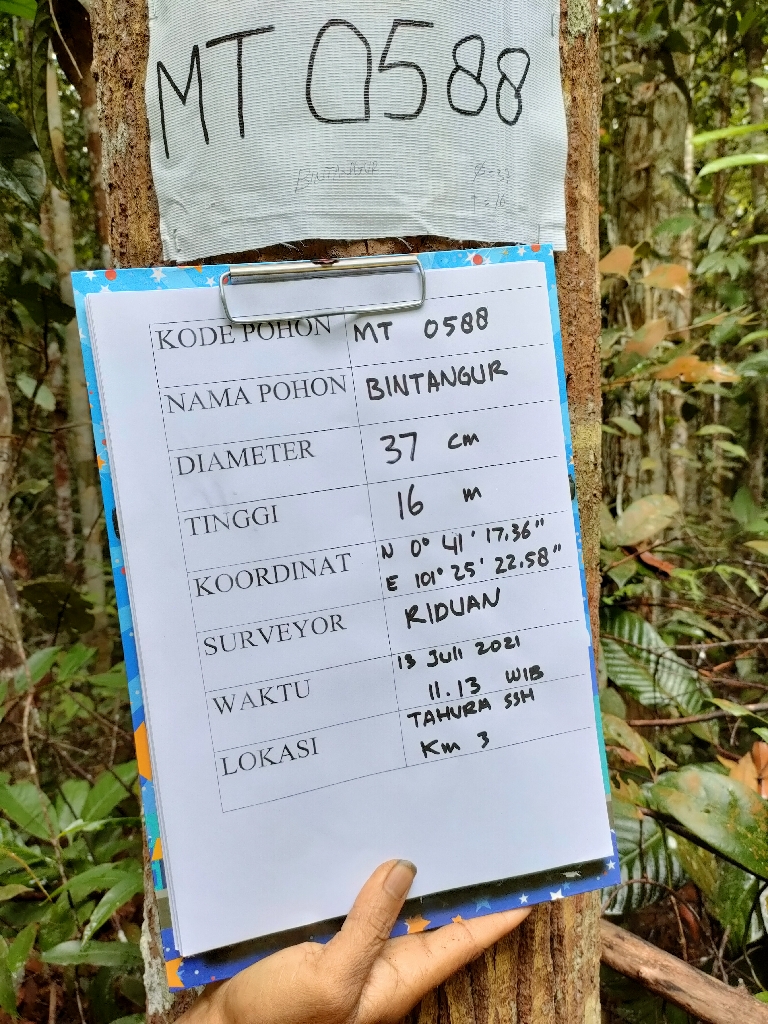 MT 0588
BINTANGUR
KODE POHON MT 0588
NAMA POHON BINTANGUR
DIAMETER 37 cm
TINGGI 16 m
KOORDINAT N 0° 41' 17.36"
E 101° 25' 22.58"
SURVEYOR RIDUAN
WAKTU 13 Juli 2021
11.13 WIB
LOKASI TAHURA SSH
Km 3